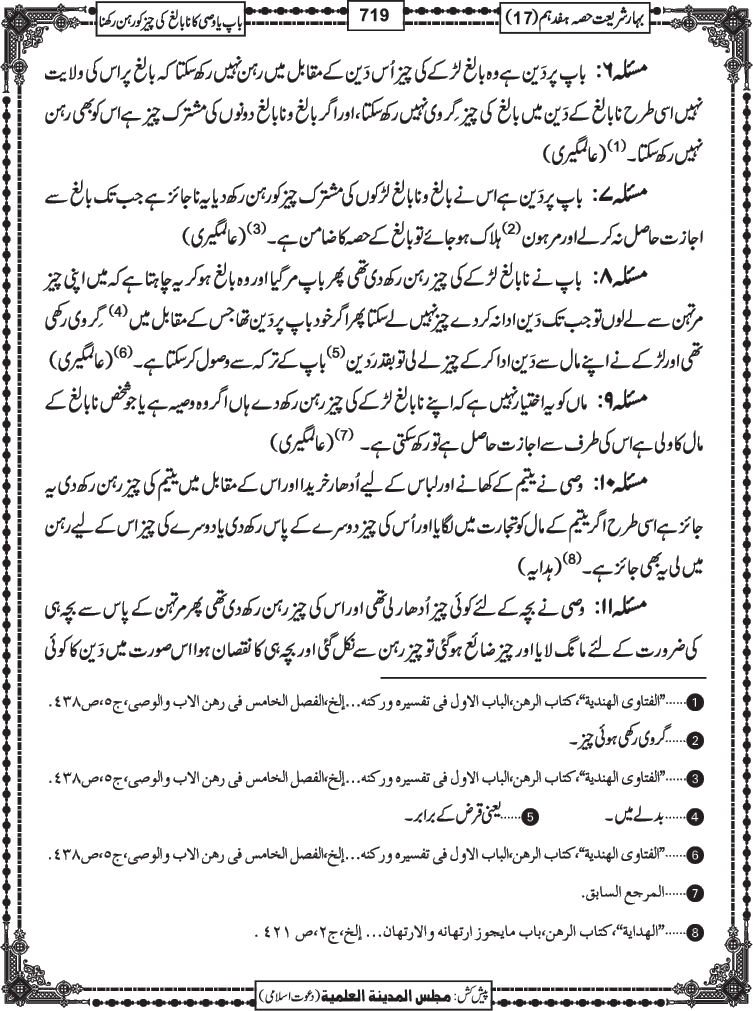 بہار شریعت حصہ ہفدہم (17)
719
باپ یا وصی کا نابالغ کی چیز کو رہن رکھنا
مسئلہ ۶: باپ پر دَین ہے وہ بالغ لڑکے کی چیز اُس دَین کے مقابل میں رہن نہیں رکھ سکتا کہ بالغ پر اس کی ولایت
نہیں اسی طرح نابالغ کے دَین میں بالغ کی چیز گِروی نہیں رکھ سکتا، اور اگر بالغ و نابالغ دونوں کی مشترک چیز ہے اس کو بھی رہن
نہیں رکھ سکتا۔(1) (عالمگیری)
مسئلہ ۷: باپ پر دَین ہے اس نے بالغ و نابالغ لڑکوں کی مشترک چیز کو رہن رکھ دیا یہ ناجائز ہے جب تک بالغ سے
اجازت حاصل نہ کرلے اور مرہون (2) ہلاک ہوجائے تو بالغ کے حصہ کا ضامن ہے۔(3) (عالمگیری)
مسئلہ ۸: باپ نے نابالغ لڑکے کی چیز رہن رکھ دی تھی پھر باپ مرگیا اور وہ بالغ ہوکر یہ چاہتا ہے کہ میں اپنی چیز
مرتہن سے لے لوں تو جب تک دَین ادا نہ کردے چیز نہیں لے سکتا پھر اگر خود باپ پر دَین تھا جس کے مقابل میں (4) گِروی رکھی
تھی اور لڑکے نے اپنے مال سے دَین ادا کرکے چیز لے لی تو بقدر دَین (5) باپ کے ترکہ سے وصول کرسکتا ہے۔(6) (عالمگیری)
مسئلہ ۹: ماں کو یہ اختیار نہیں ہے کہ اپنے نابالغ لڑکے کی چیز رہن رکھ دے ہاں اگر وہ وصیہ ہے یا جو شخص نابالغ کے
مال کا ولی ہے اس کی طرف سے اجازت حاصل ہے تو رکھ سکتی ہے۔ (7) (عالمگیری)
مسئلہ ۱۰: وصی نے یتیم کے کھانے اور لباس کے لیے اُدھار خریدا اور اس کے مقابل میں یتیم کی چیز رہن رکھ دی یہ
جائز ہے اسی طرح اگر یتیم کے مال کو تجارت میں لگایا اور اُس کی چیز دوسرے کے پاس رکھ دی یا دوسرے کی چیز اس کے لیے رہن
میں لی یہ بھی جائز ہے۔(8) (ہدایہ)
مسئلہ ۱۱: وصی نے بچہ کے لئے کوئی چیز اُدھار لی تھی اور اس کی چیز رہن رکھ دی تھی پھر مرتہن کے پاس سے بچہ ہی
کی ضرورت کے لئے مانگ لایا اور چیز ضائع ہوگئی تو چیز رہن سے نکل گئی اور بچہ ہی کا نقصان ہوا اس صورت میں دَین کا کوئی
1 ......"الفتاوی الهندية"،کتاب الرهن،الباب الاول فی تفسیره ورکنه...إلخ،الفصل الخامس فی رهن الاب والوصی،ج٥،ص٤٣٨.
2 ......گروی رکھی ہوئی چیز۔
3 ......"الفتاوی الهندية"،کتاب الرهن،الباب الاول فی تفسیره ورکنه...إلخ،الفصل الخامس فی رهن الاب والوصی،ج٥،ص٤٣٨.
4 ......بدلے میں۔ 5 ......یعنی قرض کے برابر۔
6 ......"الفتاوی الهندية"،کتاب الرهن،الباب الاول فی تفسیره ورکنه...إلخ،الفصل الخامس فی رهن الاب والوصی،ج٥،ص٤٣٨.
7 ......المرجع السابق.
8 ......"الهداية"،کتاب الرهن،باب مایجوز ارتهانه والارتهان... إلخ،ج٢،ص ٤٢١ .
پیش کش: مجلس المدينة العلمية (دعوت اسلامی)